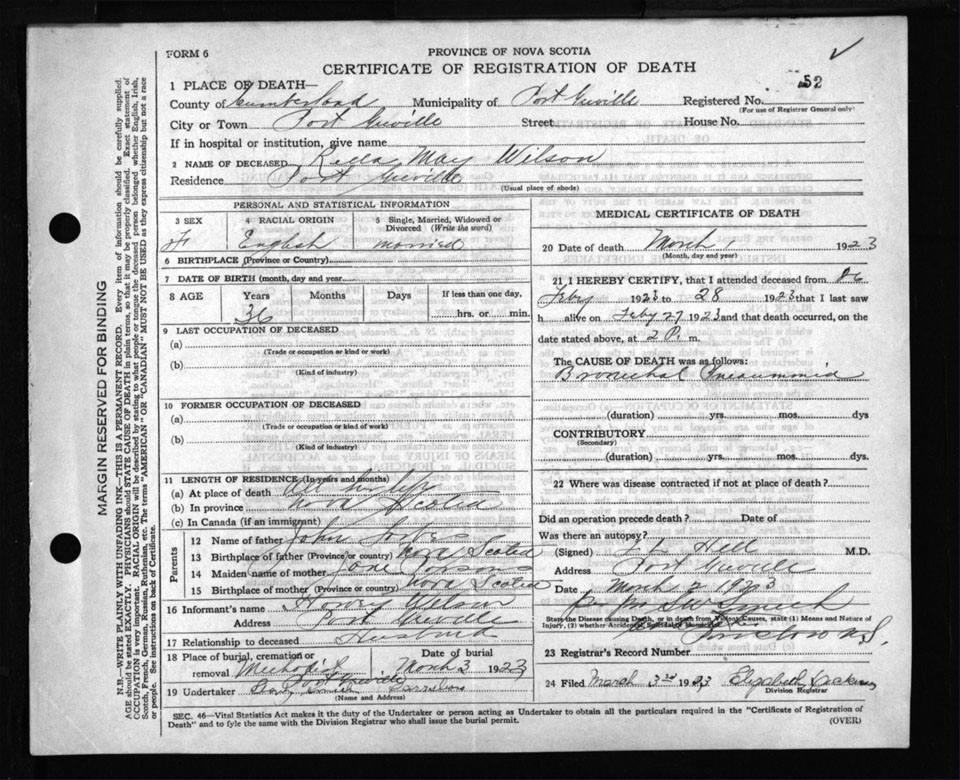 FORM 6
PROVINCE OF NOVA SCOTIA
CERTIFICATE OF REGISTRATION OF DEATH
1 PLACE OF DEATH—
52
County of Cumberland Municipality of Port Greville Registered No.
(For use of Registrar General only)
City or Town Port Greville Street House No.
If in hospital or institution, give name
2 NAME OF DECEASED May Wilson
Residence Port Greville
(Usual place of abode)
PERSONAL AND STATISTICAL INFORMATION
3 SEX 4 RACIAL ORIGIN 5 Single, Married, Widowed or Divorced (Write the word)
F English married
6 BIRTHPLACE (Province or Country)
7 DATE OF BIRTH (month, day and year)
8 AGE Years Months Days If less than one day,
36 hrs. or min.
9 LAST OCCUPATION OF DECEASED
(a)
(Trade or occupation or kind or work)
(b)
(Kind of industry)
10 FORMER OCCUPATION OF DECEASED
(a)
(Trade or occupation or kind of work)
(b)
(Kind of industry)
11 LENGTH OF RESIDENCE (In years and months)
(a) At place of death All her life
(b) In province Nova Scotia
(c) In Canada (if an immigrant)
Parents
12 Name of father John
13 Birthplace of father (Province or country) Nova Scotia
14 Maiden name of mother Jane
15 Birthplace of mother (Province or country) Nova Scotia
16 Informant's name Wilson
Address Port Greville
17 Relationship to deceased Husband
18 Place of burial, cremation or removal Methodist Date of burial March 3 1923
Port Greville
19 Undertaker Parrsboro
(Name and Address)
MEDICAL CERTIFICATE OF DEATH
20 Date of death March 1 1923
(Month, day and year)
21 I HEREBY CERTIFY, that I attended deceased from 26
Feby 1923 to 28 1923 that I last saw
h alive on Feby 27 1923 and that death occurred, on
date stated above, at 2 P. m.
The CAUSE OF DEATH was as follows:
Bronchial Pneumonia
(duration) yrs. mos. dys
CONTRIBUTORY
(Secondary)
(duration) yrs. mos. dys
22 Where was disease contracted if not at place of death?
Did an operation precede death? Date of
Was there an autopsy?
(Signed) Hill M.D.
Address Port Greville
Date March 2 1923
State the Disease causing Death, or in Deaths from Violent Causes, state (1) Means and Nature of Injury, (2) whether Accidental, Suicidal or Homicidal
23 Registrar's Record Number
24 Filed March 3rd 1923 Elizabeth
Division Registrar
SEC. 46—Vital Statistics Act makes it the duty of the Undertaker or person acting as Undertaker to obtain all the particulars required in the "Certificate of Registration of
Death" and to fyle the same with the Division Registrar who shall issue the burial permit. (OVER)
MARGIN RESERVED FOR BINDING
N.B.—WRITE PLAINLY WITH UNFADING INK—THIS IS A PERMANENT RECORD. Every item of information should be carefully supplied.
AGE should be stated EXACTLY. PHYSICIANS should STATE CAUSE OF DEATH in plain terms, so that it may be properly classified. Exact statement of
OCCUPATION is very important. RACIAL ORIGIN will be described by stating to what people or tongue the deceased person belonged whether English, Irish,
Scotch, French, German, Russian, Ruthenian, etc. The terms "AMERICAN" OR "CANADIAN" MUST NOT BE USED as they express citizenship but not a race
or people. See instructions on back of Certificate.